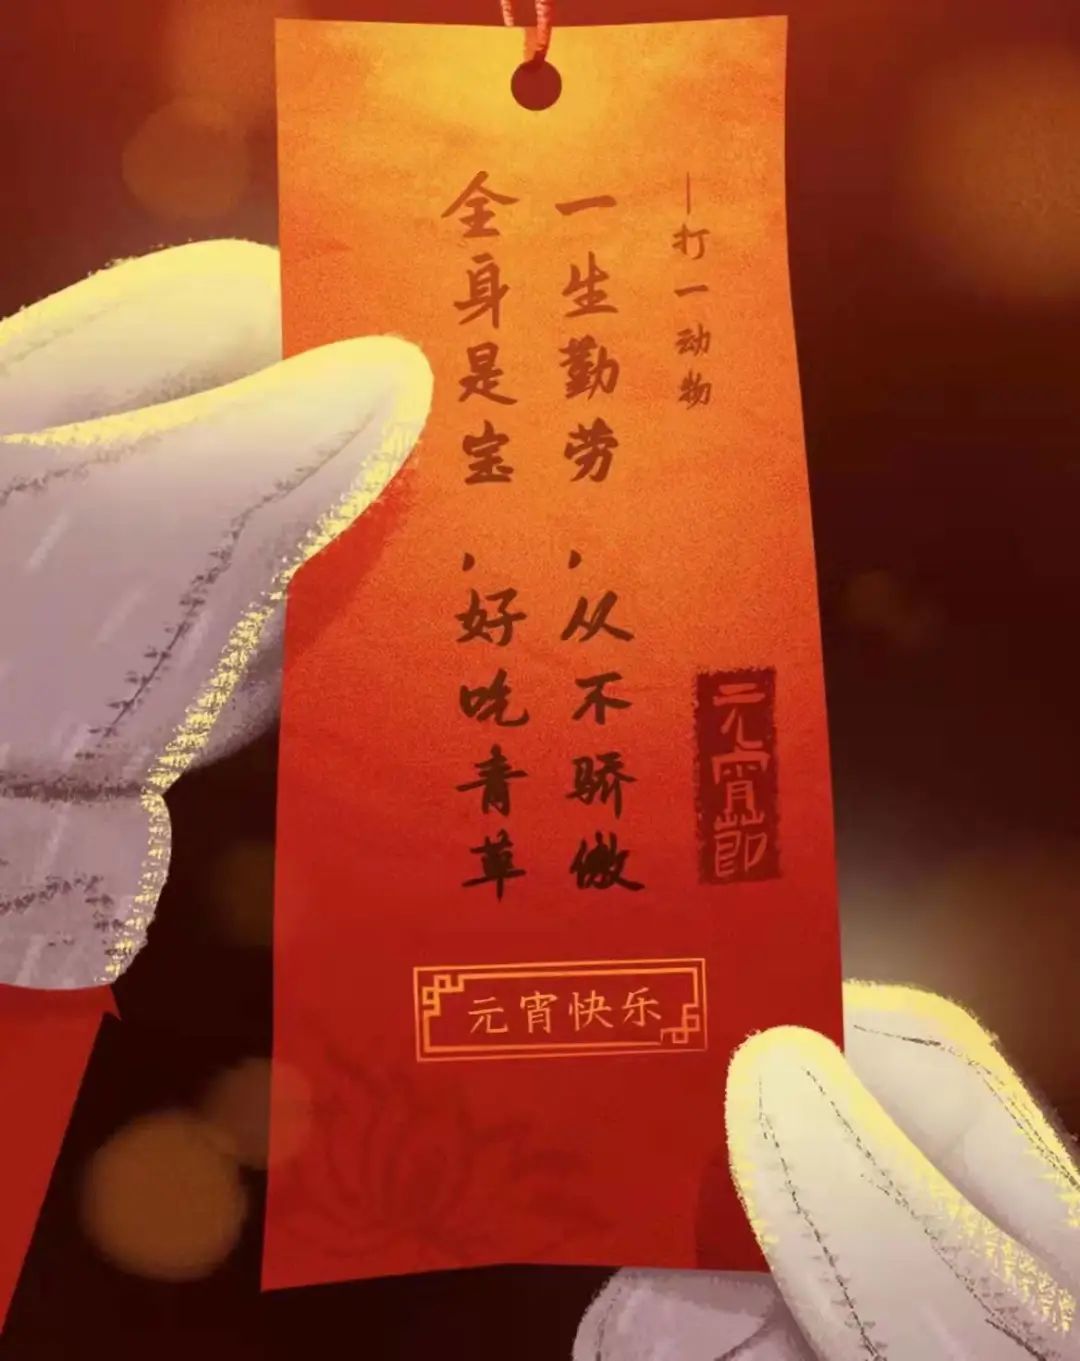 —打一动物
一生勤劳,从不骄傲
全身是宝,好吃青草
元宵节
元宵快乐